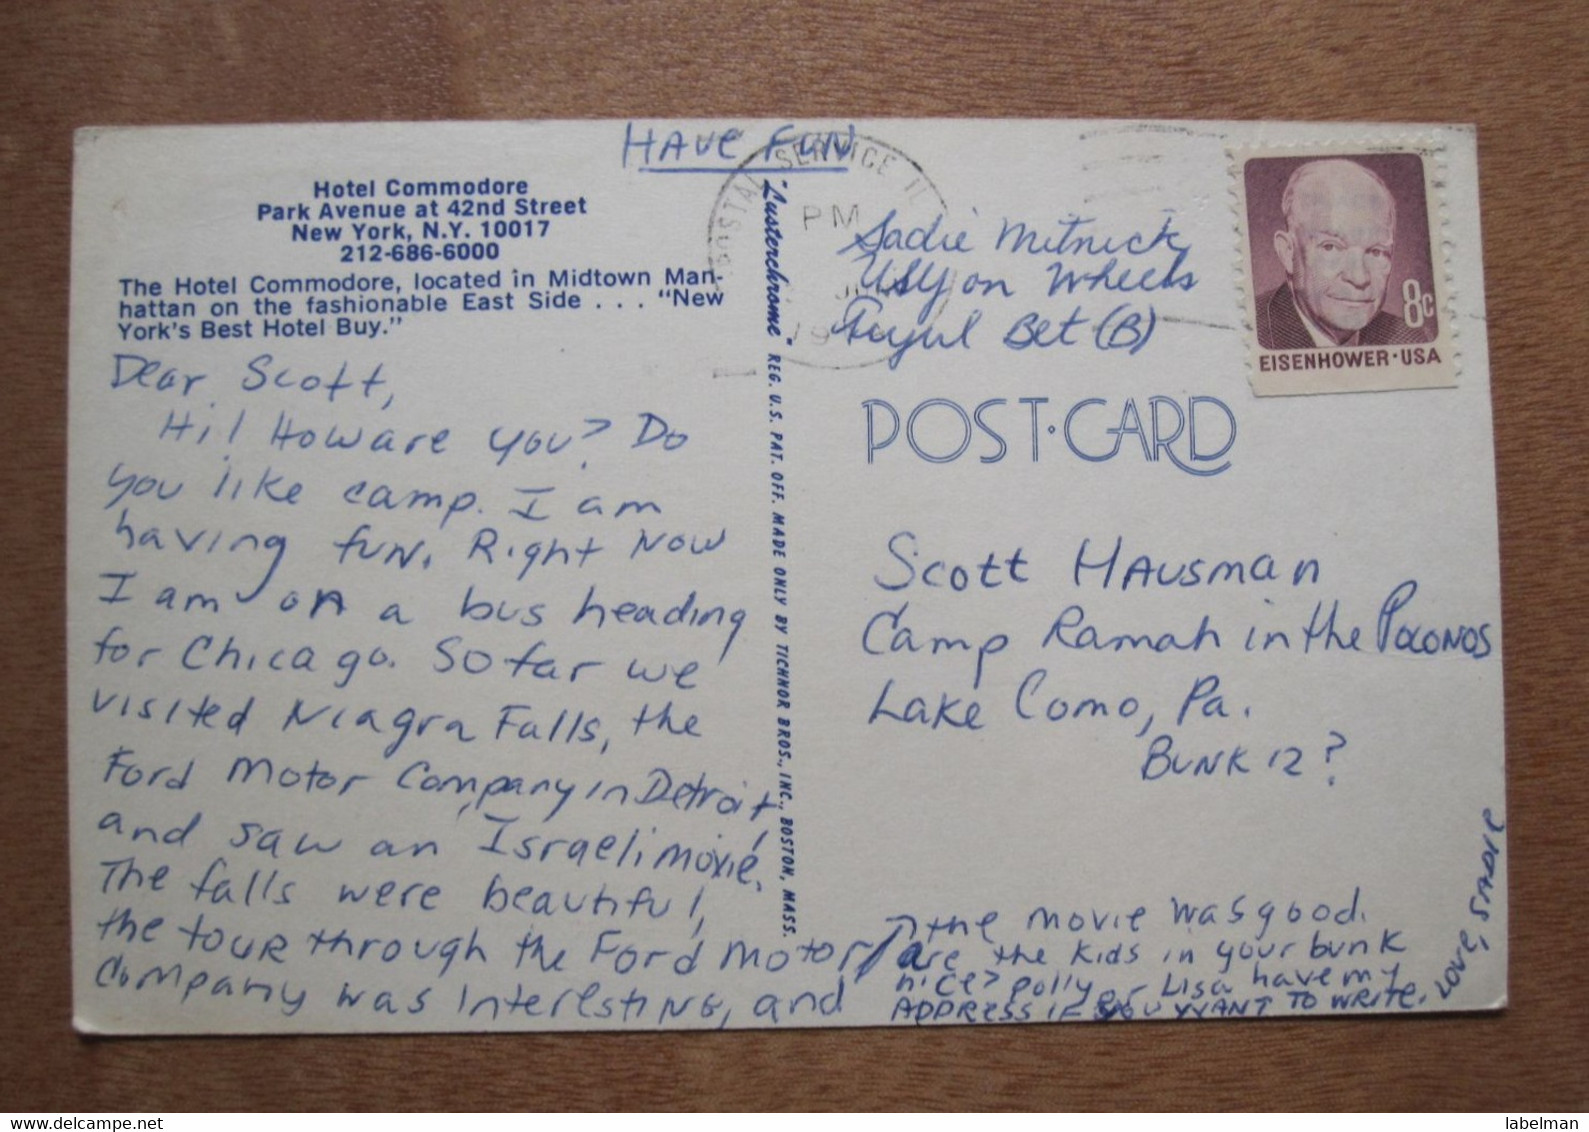 HAVE FUN
Hotel Commodore
Park Avenue at 42nd Street
New York, N.Y. 10017
212-686-6000
The Hotel Commodore, located in Midtown Man-
hattan on the fashionable East Side . . . "New
York's Best Hotel Buy."
Dear Scott,
Hi! How are you? Do
you like camp. I am
having fun. Right now
I am on a bus heading
for Chicago. So far we
visited Niagra Falls, the
Ford Motor Company in Detroit,
and saw an Israeli movie.
The falls were beautiful,
the tour through the Ford Motor
Company was interesting, and
"Lusterchrome" REG. U.S. PAT. OFF. MADE ONLY BY TICHNOR BROS., INC., BOSTON, MASS.
POSTAL SERVICE IL
PM
19
Sadie Mitnick
USY on Wheels
Bet (B)
EISENHOWER·USA
8c
POST·CARD
Scott Hausman
Camp Ramah in the Poconos
Lake Como, Pa.
Bunk 12?
the movie was good.
are the kids in your bunk
nice? polly or Lisa have my
ADDRESS IF you WANT TO WRITE.
LOVE, SADIE
labelman